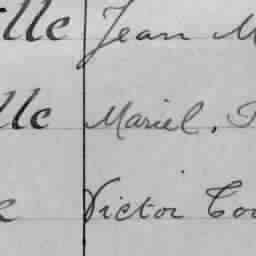 lle Jean M
lle Mariel.
e Victor Cou